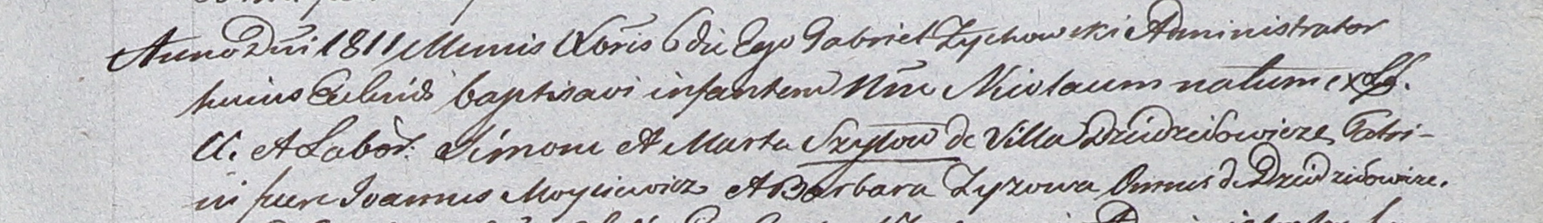 Anno Dni 1811 Mensis Xbris 6 die Ego Gabriel Zychowski Administrator
huius baptisavi infantem Nne Nicolaum natum ex LL.
CC. et Labor. Simone et Marta Szyłow de Villa Dzidziłowicze Patri-
ni fuere Ioannes Moysiewicz et Barbara Zyzowa Omnes de Dzidziłowicze.